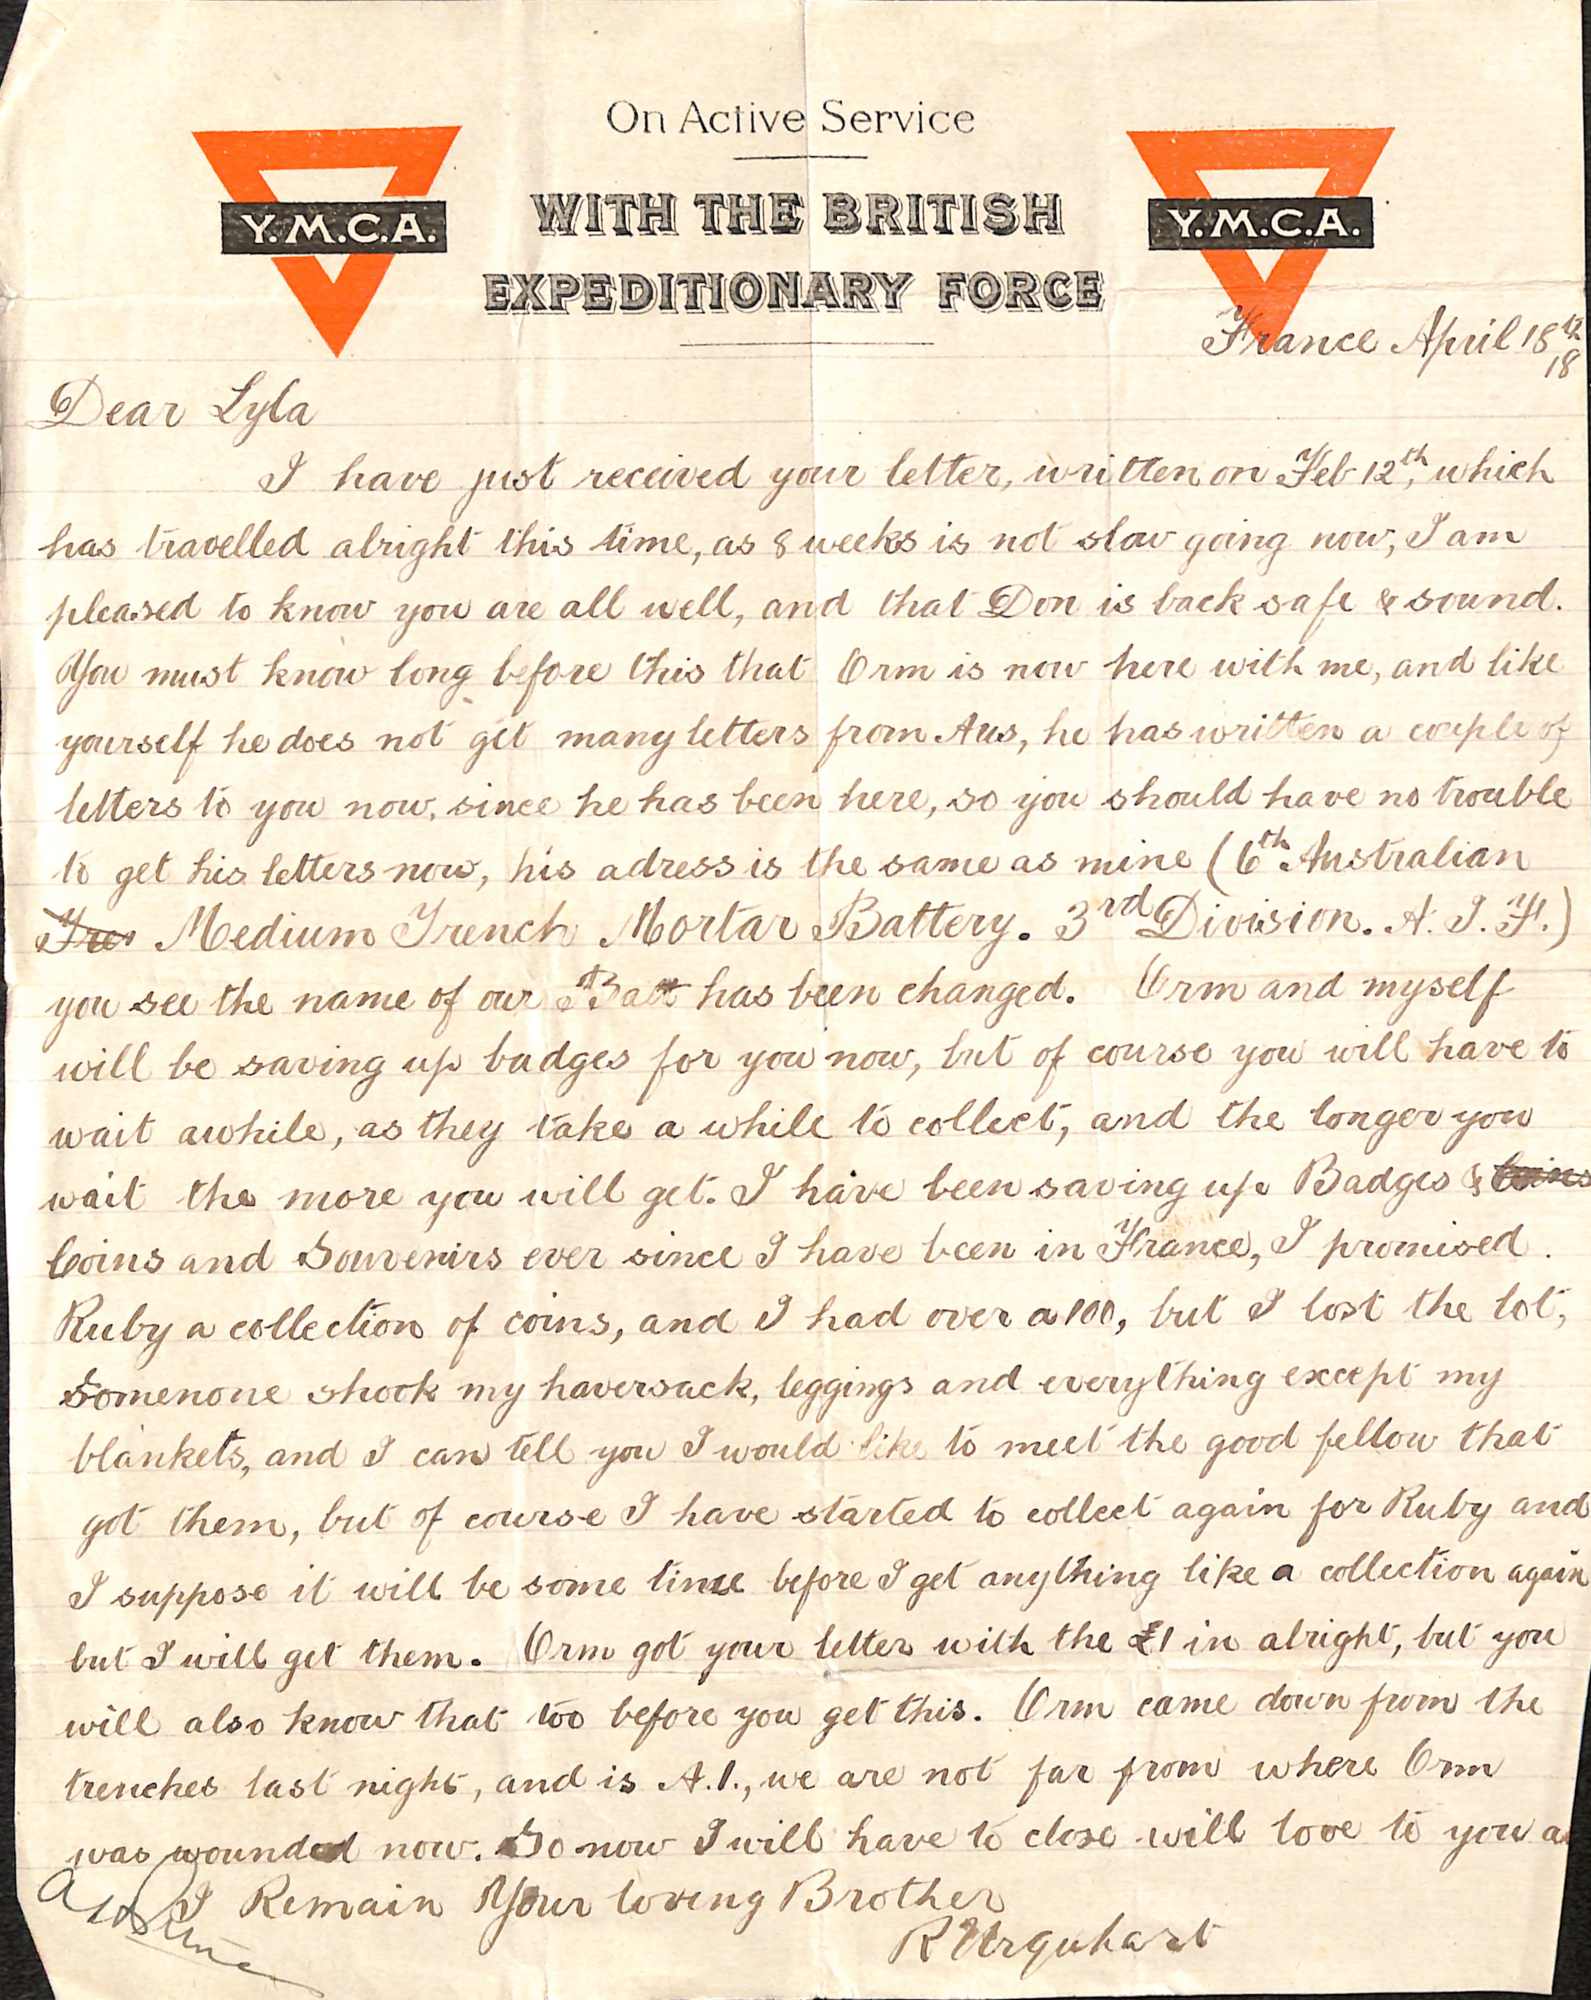 On Active Service
WITH THE BRITISH
EXPEDITIONARY FORCE
Y.M.C.A.
Y.M.C.A.
France April 18th
18
Dear Lyla
I have just received your letter, written on Feb 12th, which
has travelled alright this time, as 8 weeks is not slow going now, I am
pleased to know you are all well, and that Don is back safe & sound.
You must know long before this that Orm is now here with me, and like
yourself he does not get many letters from Aus, he has written a couple of
letters to you now, since he has been here, so you should have no trouble
to get his letters now, his adress is the same as mine (6th Australian
Tre Medium Trench Mortar Battery. 3rd Division. A. I. F.)
you see the name of our Batt has been changed. Orm and myself
will be saving up badges for you now, but of course you will have to
wait awhile, as they take a while to collect, and the longer you
wait the more you will get. I have been saving up Badges & Coins
Coins and Souvenirs ever since I have been in France, I promised
Ruby a collection of coins, and I had over a 100, but I lost the lot,
Somenone shook my haversack, leggings and everything except my
blankets, and I can tell you I would like to meet the good fellow that
got them, but of course I have started to collect again for Ruby and
I suppose it will be some time before I get anything like a collection again
but I will get them. Orm got your letter with the £1 in alright, but you
will also know that too before you get this. Orm came down from the
trenches last night, and is A.1., we are not far from where Orm
was wounded now. So now I will have to close will love to you a
I Remain Your loving Brother
R Urquhart